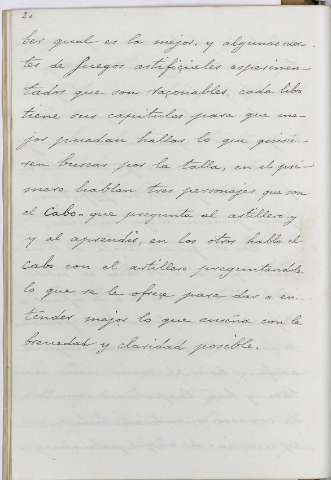 2.
ber qual es la mejor, y algunas sor-
tes de fuegos artificiales esperimen-
tados que son razonables, cada libro
tiene sus capitulos para que me-
jor puedan hallar lo que quisie-
ren buscar por la talla, en el pri-
mero hablan tres personajes que son
el Cabo-que pregunta al artillero y
y al aprendis, en los otros habla el
Cabo con el artillero preguntandole
lo que se le ofrece para dar a en-
tender mejor lo que enseña con la
brevedad y claridad posible.